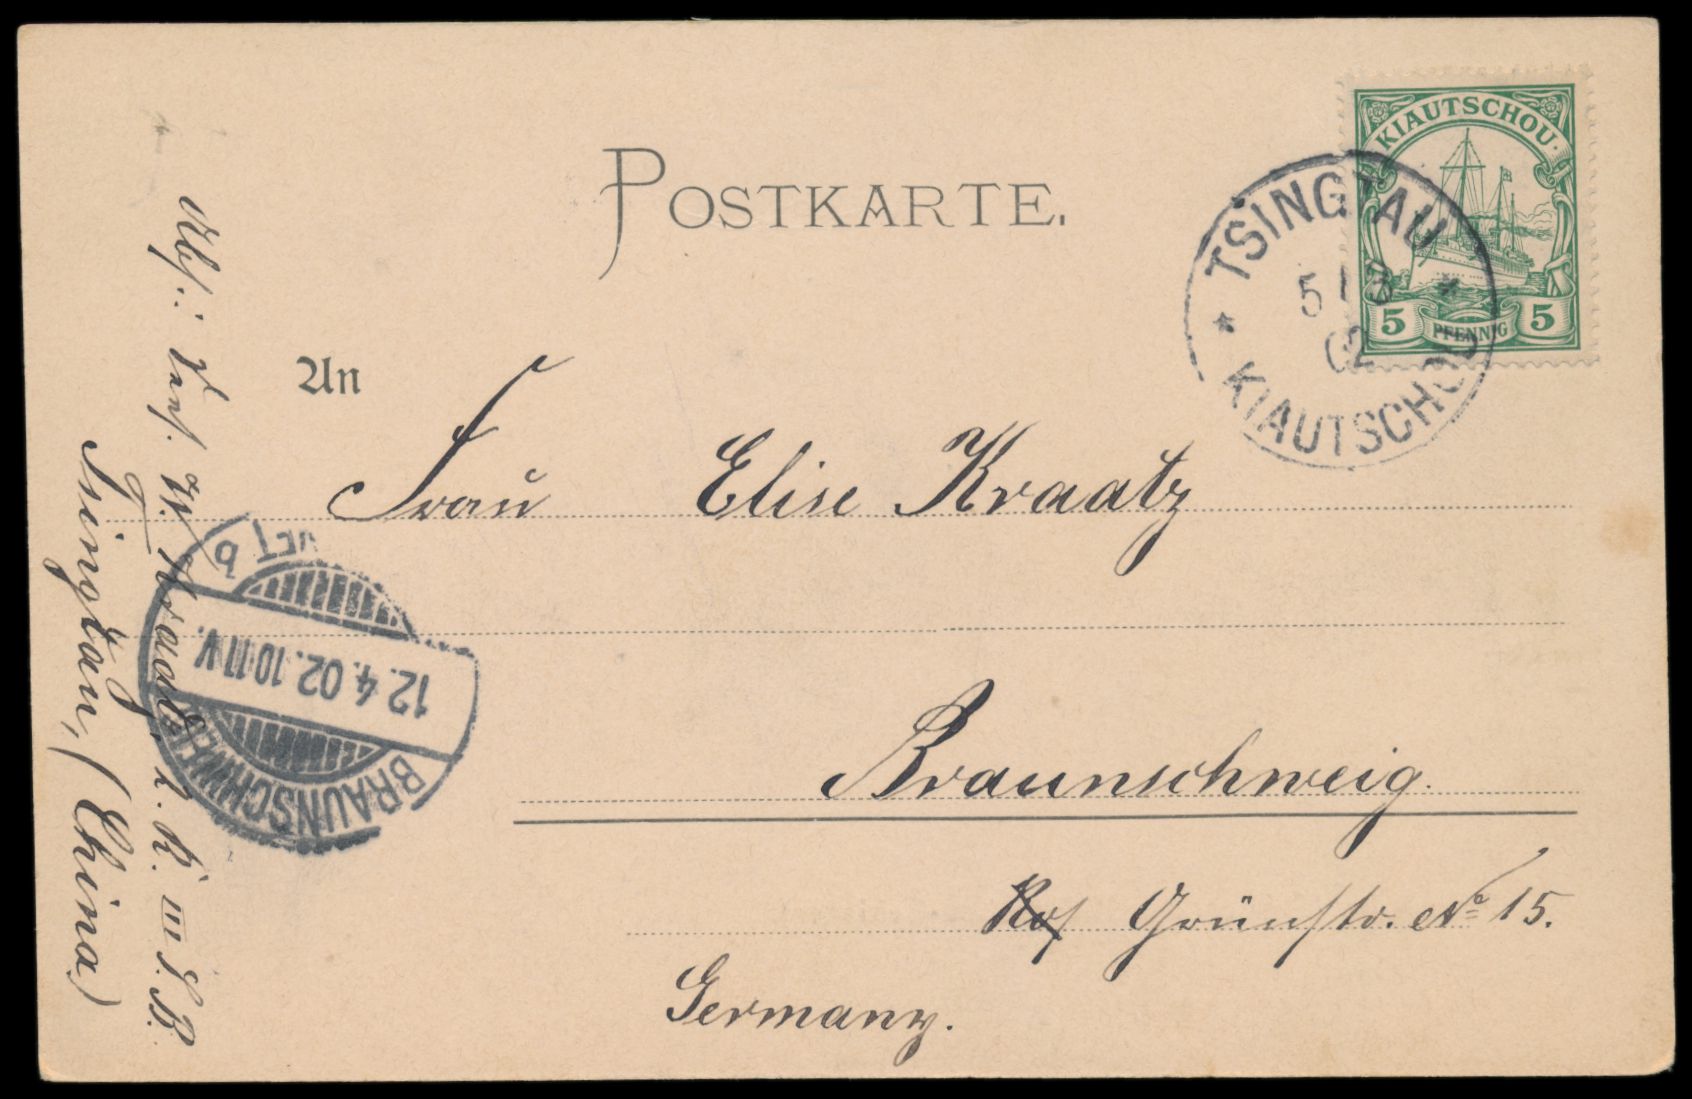 POSTKARTE.
KIAUTSCHOU
5 PFENNIG 5
TSINGTAU
5/3
02
KIAUTSCHOU
An
Frau Elise Kraatz
Braunschweig.
Grünstr. No 15.
Germany.
Abs.: W. Kraatz, III. S. B.
Tsingtau, (China)
BRAUNSCHWEIG
12.4.02.10-11V.
b